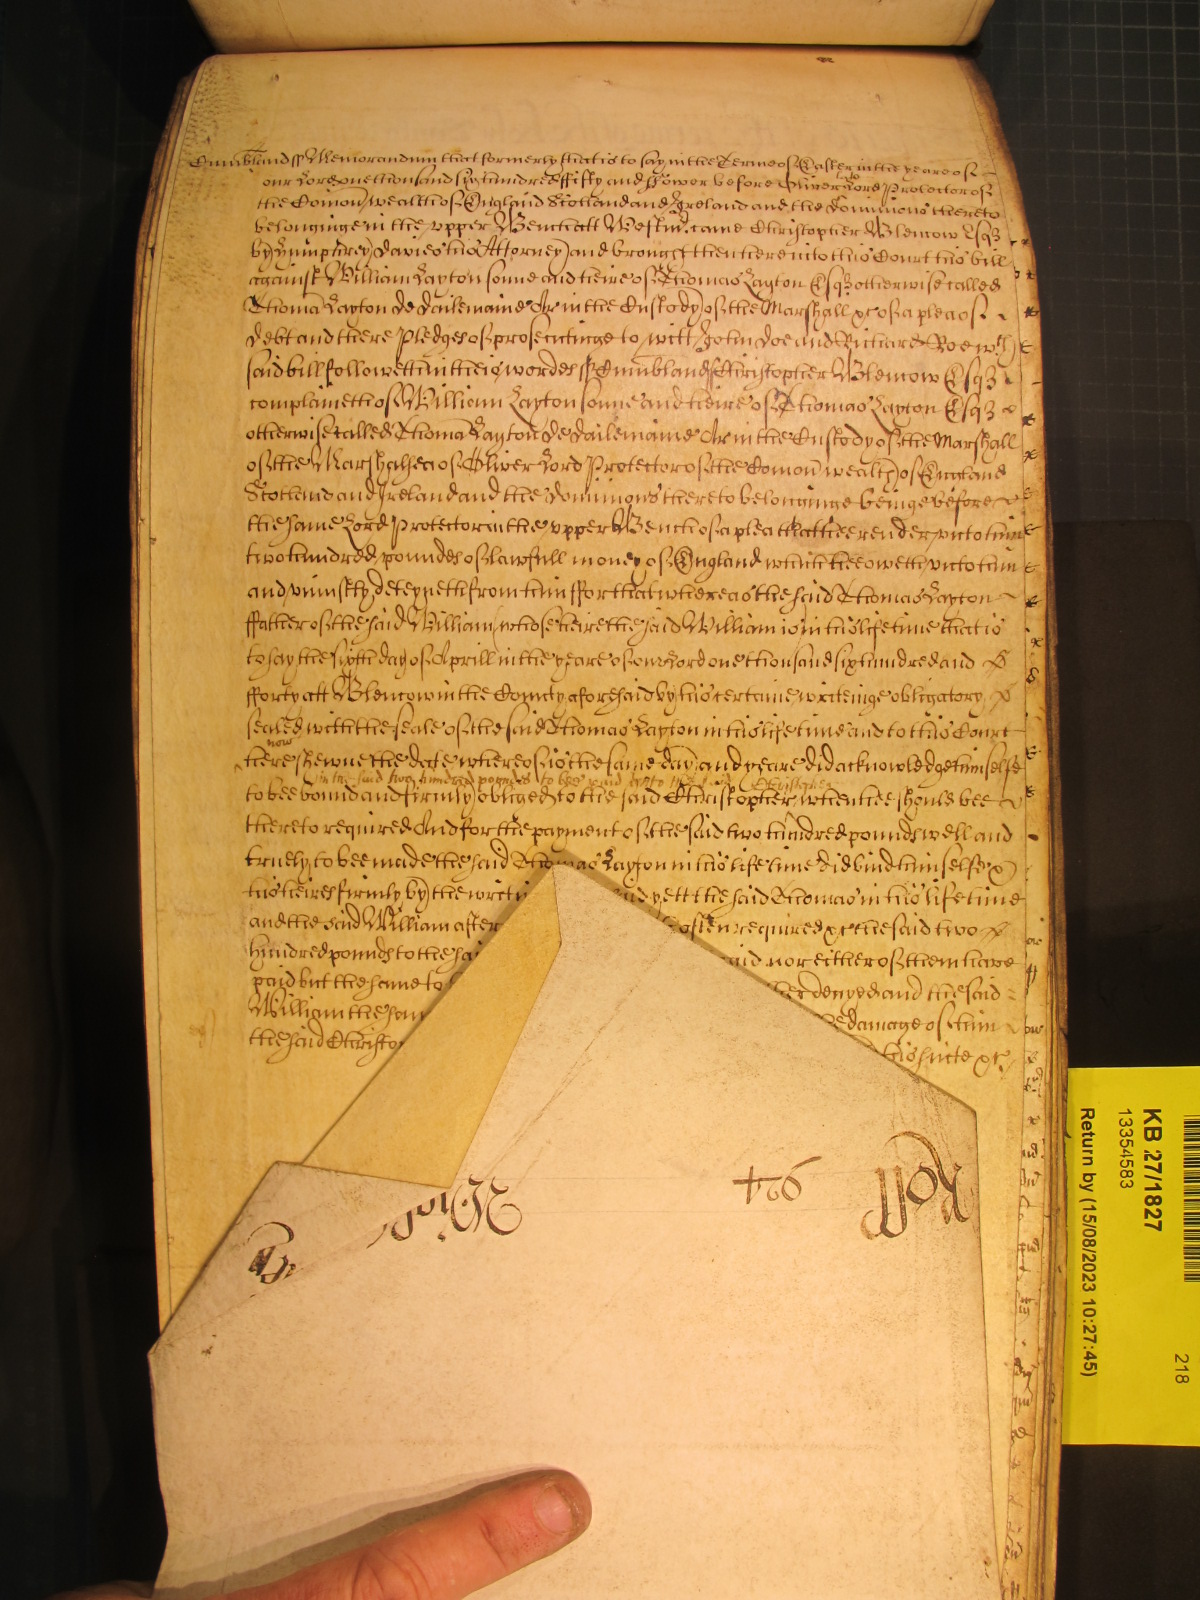 Cumbland ss Memorandum that formerly that is to say in the Terme of Easter in the yeare of
our Lord one thousand six hundred fifty and fower before Oliver Lord Protector of
the Comon wealth of England Scotland and Ireland and the dominions thereto
belonginge in the vpper Bench att Westm̃ came Christopher Blencow Esqꝫ
by Humphrey Davies his Attorney and brought then here into this Court his bill
against William Layton sonne and heire of Thomas Layton Esqꝫ otherwise called
Thoma Layton de Dailemaine Ar in the Custody of the Marshall &c of a plea of
debt and there Pledges of prosecutinge to witt John Doe and Richard Roe wch
said bill followeth in theis wordes ss Cumbland ss Christopher Blencow Esqꝫ
complaineth of William Layton sonne and heire of Thomas Layton Esqꝫ
otherwise called Thoma Layton de Dailemaine Ar in the Custody of the Marshall
of the Marshalsea of Oliver Lord Protector of the Comon wealth of England
Scotland and Ireland and the dominions thereto belonginge beinge before
the same Lord Protector in the vpper Bench of a plea that hee render vnto him
two hundred poundes of lawfull money of England which hee oweth vnto him
and vniustly deteyneth from him ffor that whereas the said Thomas Layton
ffather of the said William whose heire the said William is in his life time that is
to say the sixth day of Aprill in the yeare of our Lord one thousand six hundred and
fforty att Blencow in the County aforesaid by his certaine writeinge obligatory
sealed with the seale of the said Thomas Layton in his life time and to this Court
now
here shewne the date whereof is the same day and yeare did acknowledge himselfe
in the said two hundred poundes to bee paid vnto the said Christopher
to bee bound and firmly obliged to the said Christopher when hee should bee
thereto required And for the payment of the said two hundred pounds well and
truely to bee made the said Thomas Layton in his life time did bind himselfe &
his heires firmly by the writ and yett the said Thomas in his life time
and the said William after often required &c the said two
hundred pounds to the sai said nor either of them have
paid but the same to denyed and the said
William the sam damage of him
the said Christo his suite &c
Roll
924
KB 27/1827
13354583
Return by (15/08/2023 10:27:45)
218